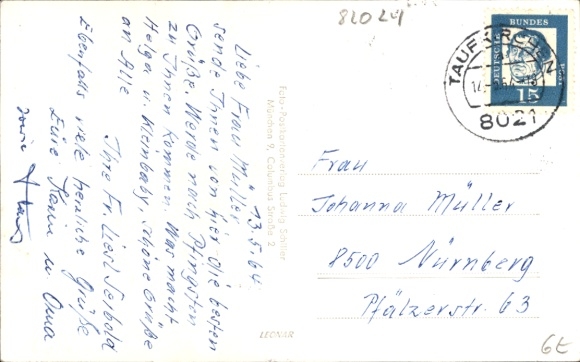 82024
13.5.64
Liebe Frau Müller!
sende Ihnen von hier die besten
Grüße. Werde nach Pfingsten
zu Ihnen kommen. Was macht
Helga u. Kleinbaby, schöne Grüße
an Alle
Ihre Fr. Liesl
Ebenfalls viele herzliche Grüße
Eure u Oma
Foto-Postkartenverlag Ludwig
München 9, Columbus Straße 2
LEONAR
DEUTSCHE
BUNDES
POST
15
TAUFKIRCHEN
8021
Frau
Johanna Müller
8500 Nürnberg
Pfälzerstr. 63
6E